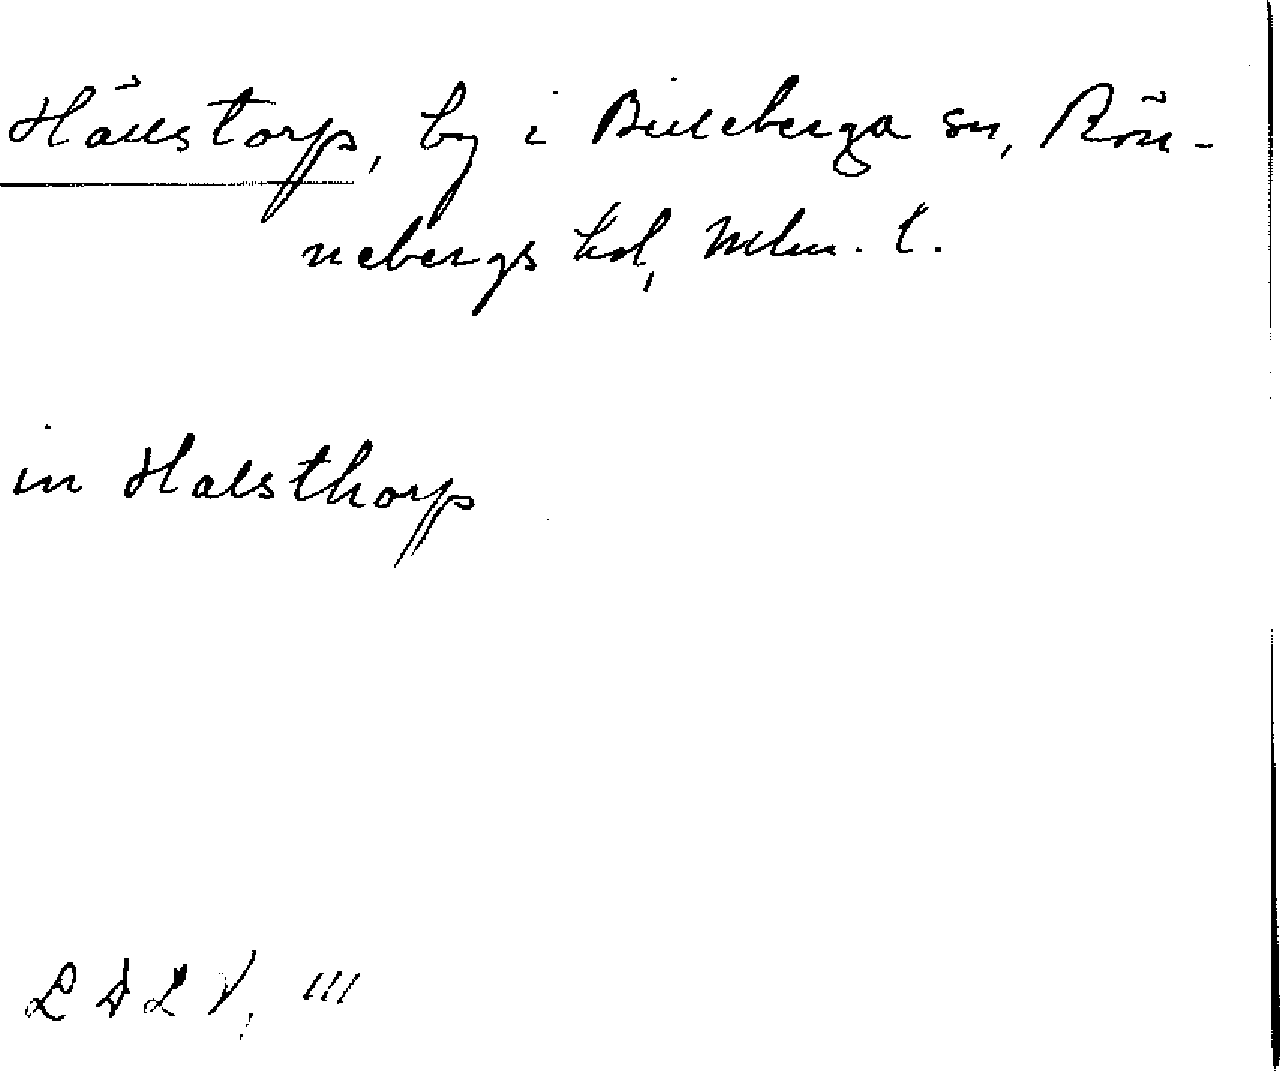 Hällstorp, by i Billeberga sn, Rön-
nebergs hd, Mlm. l.
in Halsthorp
L D L V, 111